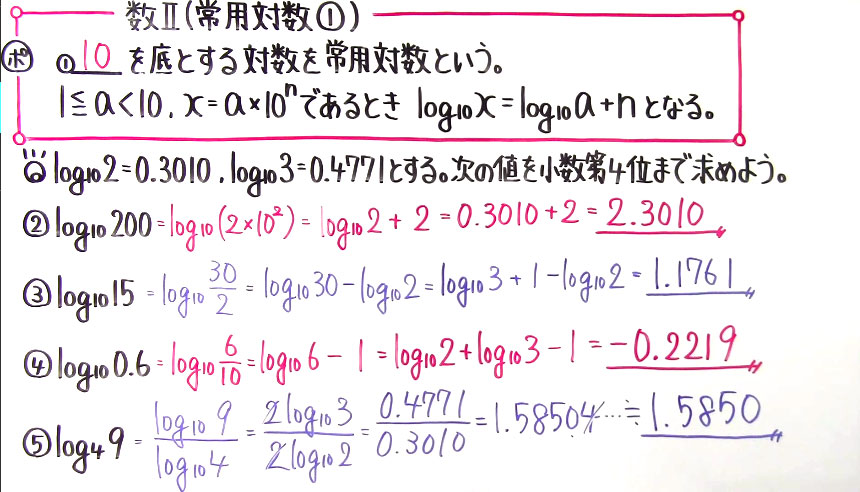 数Ⅱ(常用対数①)
ポ ① 10 を底とする対数を常用対数という。
1≦a<10, x=a×10ⁿであるとき log₁₀x=log₁₀a+nとなる。
log₁₀2=0.3010, log₁₀3=0.4771とする。次の値を小数第4位まで求めよう。
② log₁₀200=log₁₀(2×10²)=log₁₀2+2=0.3010+2=2.3010
③ log₁₀15=log₁₀30/2=log₁₀30-log₁₀2=log₁₀3+1-log₁₀2=1.1761
④ log₁₀0.6=log₁₀6/10=log₁₀6-1=log₁₀2+log₁₀3-1=-0.2219
⑤ log₄9=log₁₀9/log₁₀4=2log₁₀3/2log₁₀2=0.4771/0.3010=1.58504…≒1.5850